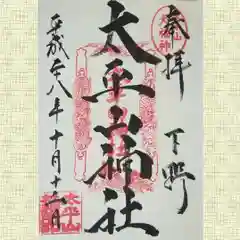 奉拝
下野
太平山神社
平成二十八年十月十二日
太平山